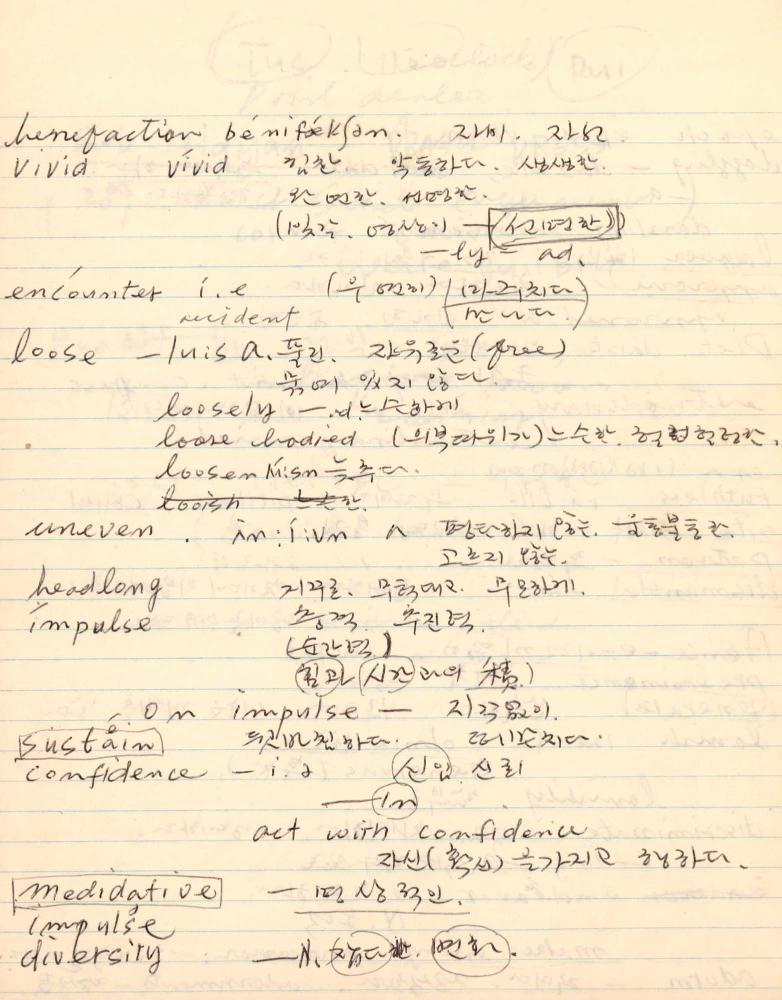 benefaction bénifǽkʃən. 자비. 자선
vivid vívid 힘찬 약동하다. 생생한.
완연한. 선명한.
(빛깔. 영상이 — (선명한))
—ly — ad.
encounter i.e (우연히) (마주치다)
accident (만나다.)
loose — luis a. 풀린. 자유로운 (free)
묶여 있지 않다.
loosely —.d. 느슨하게
loose bodied (의복따위가) 느슨한. 헐렁헐렁한.
loosen lúisn 늦추다.
looish 느슨한.
uneven . in:í:vn a 평탄하지 않는. 울퉁불퉁한.
고르지 않는.
headlong 거꾸로. 무턱대고. 무모하게.
impulse 충격 추진력.
(순간력)
(힘과 시간과의 積)
on impulse — 생각없이.
sustáin 뒷바침하다.
confidence — i.a 신임 신뢰
— in
act with confidence
자신(확신)을가지고 행하다.
medidative — 명상적인.
impulse
diversity — N. 잡다한. 변화.